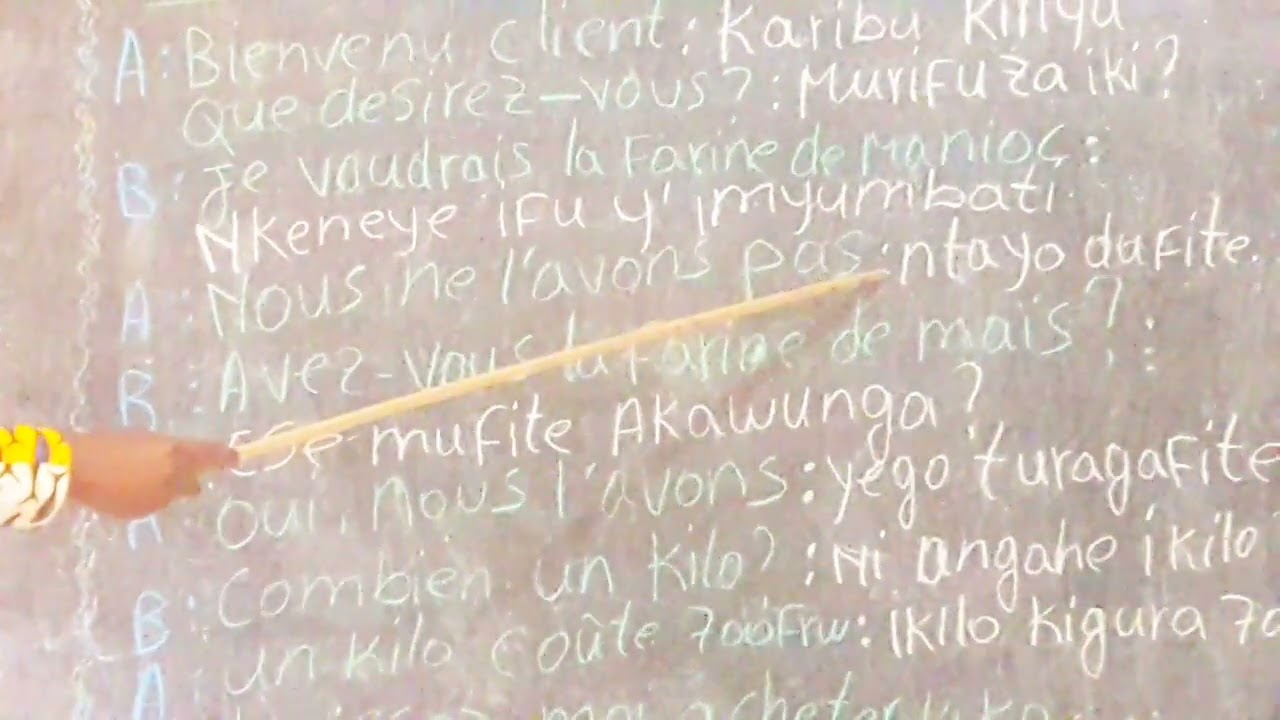 A: Bienvenu client: Karibu
Que desirez-vous?: Murifuza iki?
B: Je voudrais la Farine de Manioc:
Nkeneye iFu y'imyumbati.
A: Nous ne l'avons pas: ntayo dufite.
B: Avez-vous la farine de mais?:
Ese mufite Akawunga?
A: Oui, nous l'avons: yego turagafite
B: Combien un kilo?: Ni angahe ikilo
A: Un kilo coûte 700Frw: Ikilo kigura 70
acheter